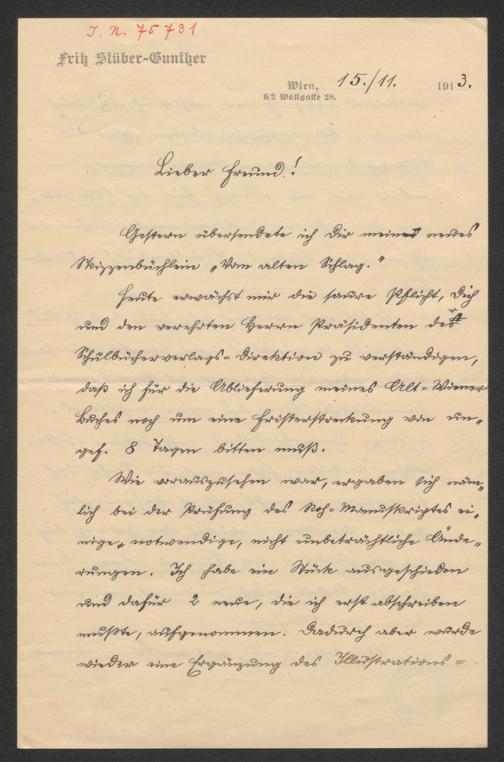 J. N. 75731
Fritz Stüber-Gunther
Wien, 15./11. 1913.
6.2 Wallgasse 28.
Lieber Freund!
Gestern übersendete ich Dir mein neues
Skizzenbüchlein „Vom alten Schlag."
Heute erwächst mir die saure Pflicht, Dich
und den verehrten Herrn Präsidenten der
Schulbücherverlags-Direktion zu verständigen,
daß ich für die Ablieferung meines Alt-Wiener
Buches noch um eine Fristerstreckung von un-
gef. 8 Tagen bitten muß.
Wie vorauszusehen war, ergaben sich näm-
lich bei der Prüfung des Roh-Manuskriptes ei-
nige, notwendige, nicht unbeträchtliche Ände-
rungen. Ich habe ein Stück ausgeschieden
und dafür 2 neue, die ich erst abschreiben
mußte, aufgenommen. Dadurch aber wurde
wieder eine Ergänzung des Illustrations-